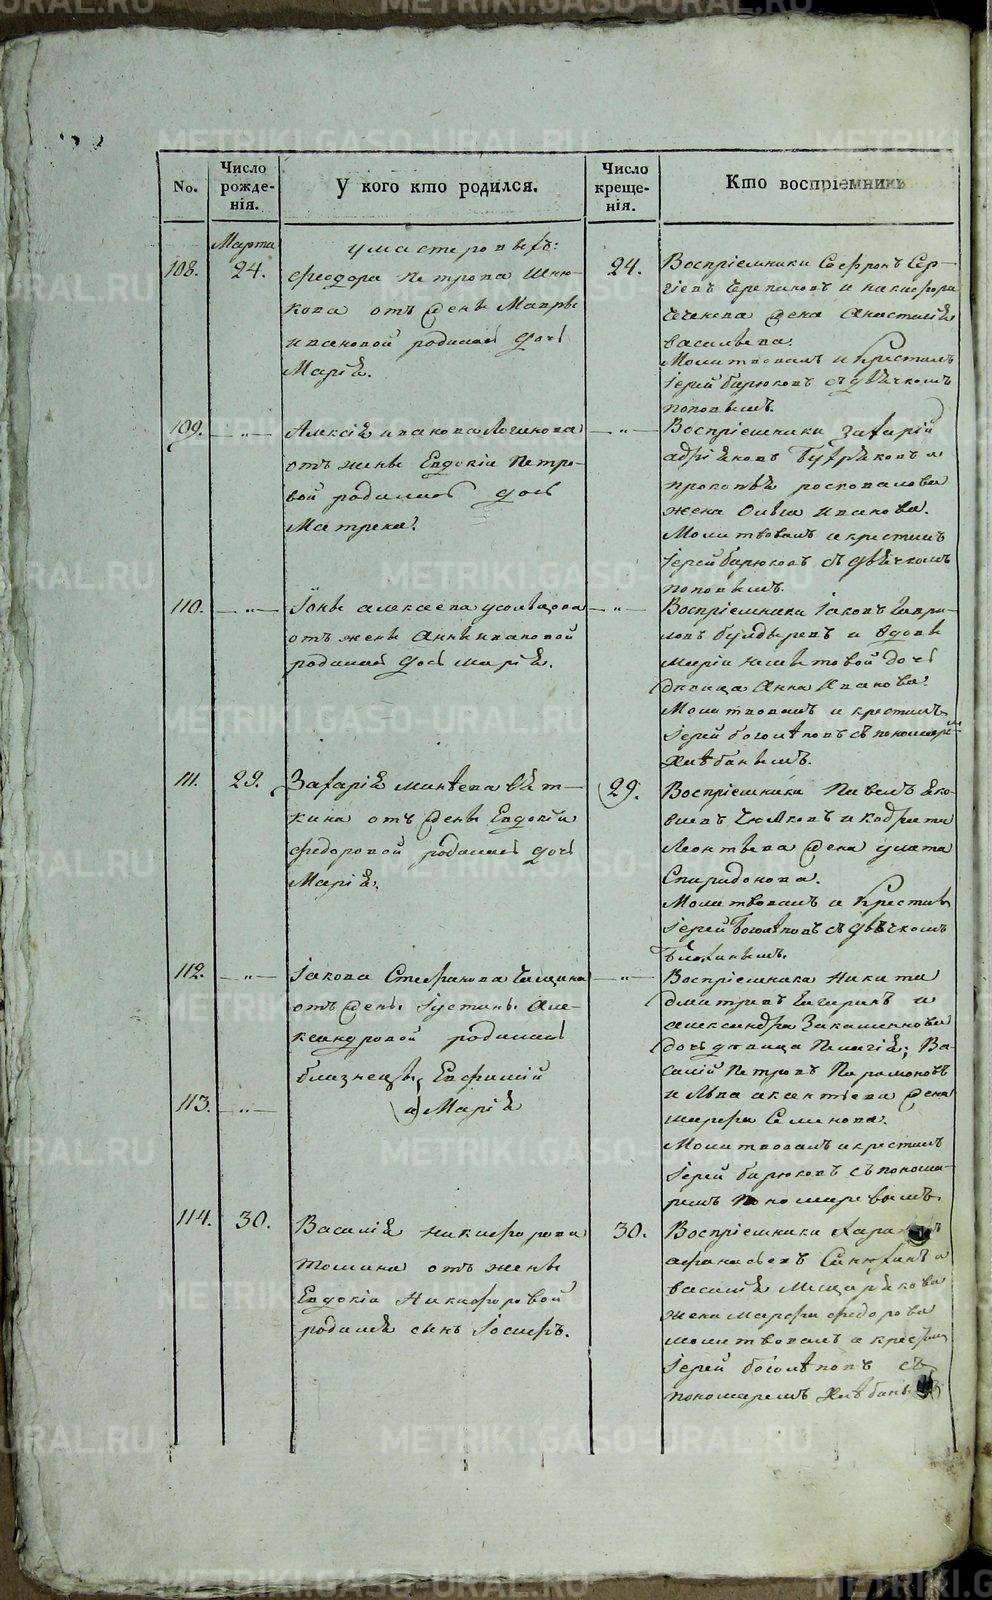 No.
Число рожде-
нія.
У кого кто родился.
Число креще-
нія.
Кто воспріемник
Марта
108.
24.
у мастеровыхъ:
Феодора Петрова
кова отъ жены Мавры
Ивановой родилась дочь
Марія.
24.
Воспріемники Софронъ Сер-
гіевъ и Никифора
жена Анастасія
Васильева.
Молитвовалъ и крестилъ
Іерей Бирюковъ съ дьячкомъ
Поповымъ.
109.
— „ —
Алексія Иванова Логинова
отъ жены Евдокіи Петро-
вой родилась дочь
Матрена.
— „ —
Воспріемники Захарій
Адріяновъ и
Прокопья
жена Ольга Иванова.
Молитвовалъ и крестилъ
Іерей Бирюковъ съ дьячкомъ
Поповымъ.
110.
— „ —
Іоны Алексеева Усольцова
отъ жены Анны Ивановой
родилась дочь Марія.
— „ —
Воспріемники Іаковъ Гаври-
ловъ Булдыревъ и вдовы
Маріи дочь
девица Анна Иванова.
Молитвовалъ и крестилъ
Іерей Боголеповъ съ пономаремъ
Хлебанымъ.
111.
29.
Захарія
кина отъ жены Евдокіи
Федоровой родилась дочь
Марія.
29.
Воспріемники Павелъ Яко-
влевъ и Кодрата
Леонтьева жена Улита
Спиридонова.
Молитвовалъ и крестилъ
Іерей Боголеповъ съ дьячкомъ
112.
— „ —
Іакова Стефанова
отъ жены Іустины Але-
ксандровой родились
близнецы, Евфимій
113.
— „ —
и Марія
— „ —
Воспріемники Никита
Дмитріевъ и
Александра
дочь девица Пелагія; Ва-
силій Петровъ Парамоновъ
и Льва Аксентьева жена
Марфа Семенова.
Молитвовалъ и крестилъ
Іерей Бирюковъ съ понома-
ремъ Пономаревымъ.
114.
30.
Василія Никифорова
Томина отъ жены
Евдокіи Никифоровой
родился сынъ Іосифъ.
30.
Воспріемники
Афанасьевъ и
Василія Мещарякова
жена Марфа Федорова
молитвовалъ и крестилъ
Іерей Боголеповъ съ
пономаремъ
METRIKI.GASO-URAL.RU